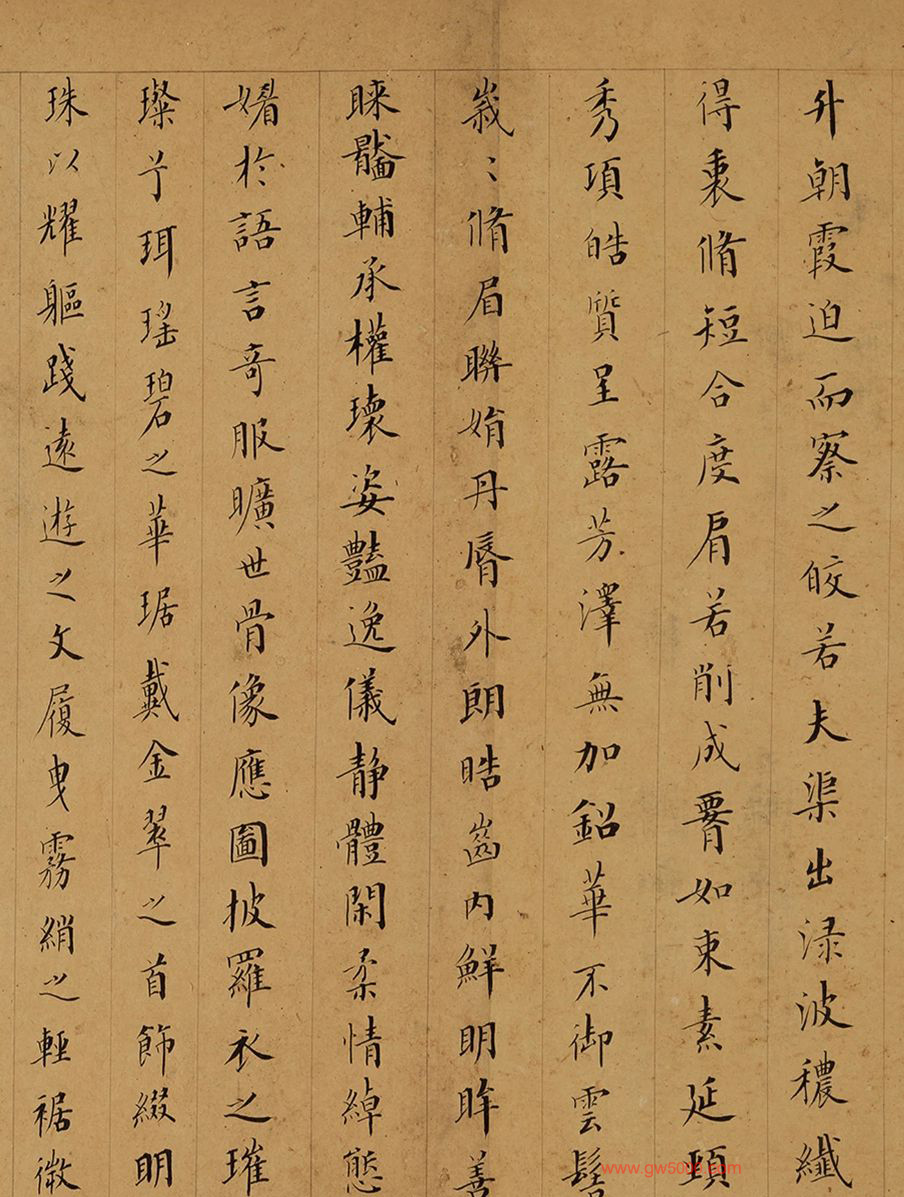 升朝霞迫而察之皎若夫渠出渌波穠纖
得衷脩短合度肩若削成𦝫如束素延頸
秀項皓質呈露芳澤無加鉛華不御雲髻
峩〻脩眉聯娟丹脣外朗晧齒内鮮明眸善
睞靨輔承權瓌姿豔逸儀静體閑柔情綽態
媚於語言奇服曠世骨像應圖披羅衣之璀
璨兮珥瑤碧之華琚戴金翠之首飾綴明
珠以耀軀踐遠遊之文履曳霧綃之輕裾微
www.gw500d.com